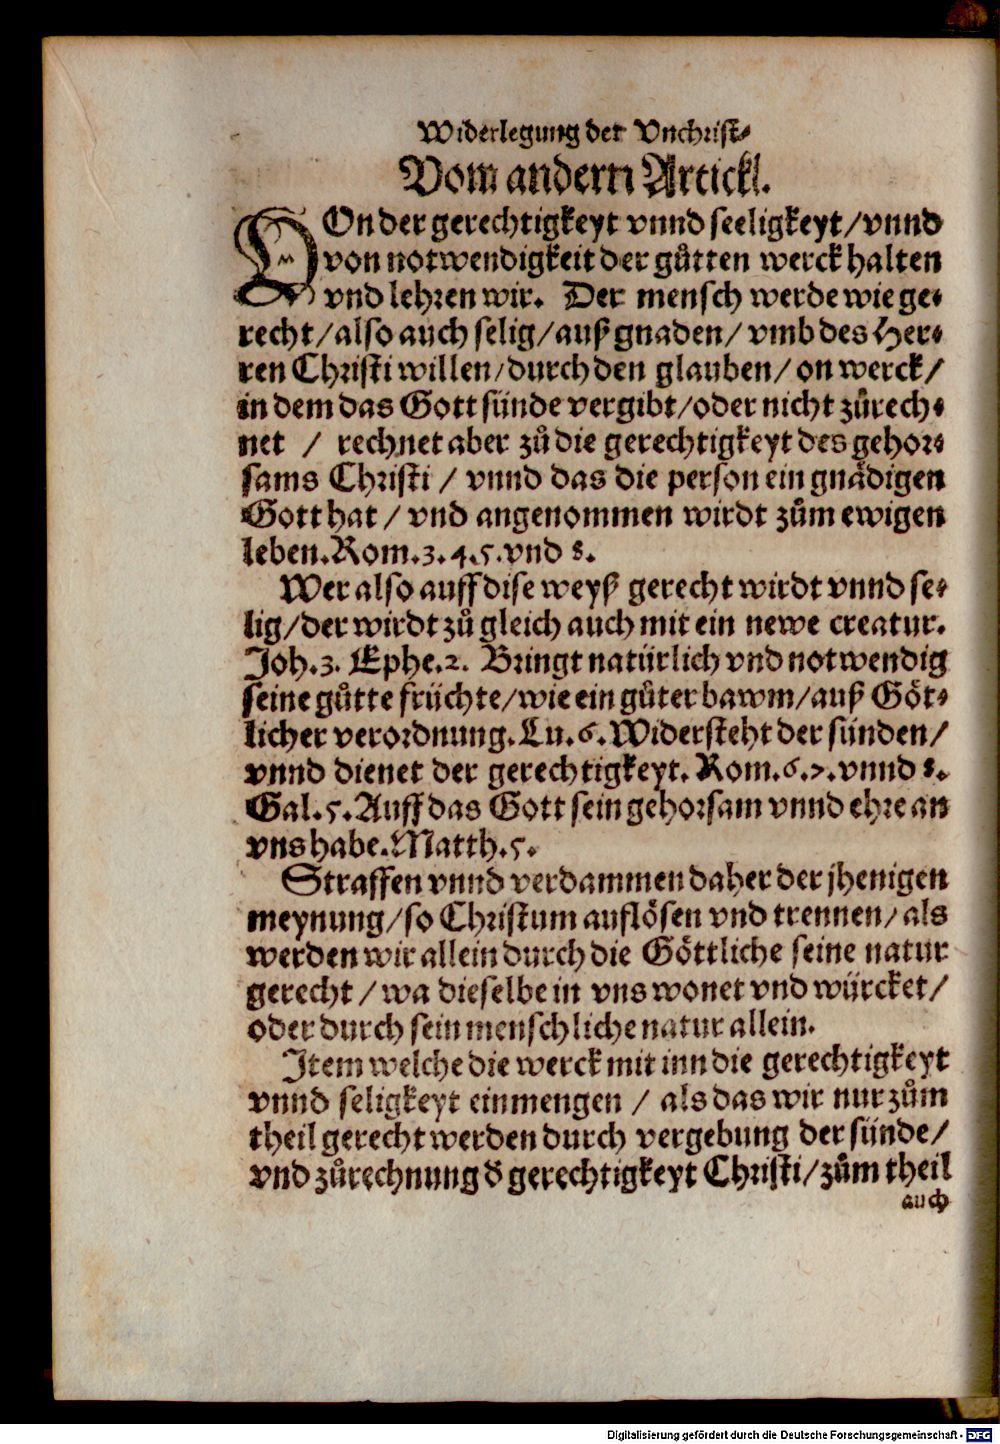 Widerlegung der Vnchrist⸗
Vom andern Artickl.
VOn der gerechtigkeyt vnnd seeligkeyt/vnnd
von notwendigkeit der gůtten werck halten
vnd lehren wir. Der mensch werde wie ge⸗
recht/also auch selig/auß gnaden/ vmb des Her⸗
ren Christi willen/durch den glauben/ on werck/
in dem das Gott sünde vergibt/oder nicht zůrech⸗
net / rechnet aber zů die gerechtigkeyt des gehor⸗
sams Christi / vnnd das die person ein gnädigen
Gott hat / vnd angenommen wirdt zům ewigen
leben.Rom.3.4.5.vnd 8.
Wer also auff dise weyß gerecht wirdt vnnd se⸗
lig/der wirdt zů gleich auch mit ein newe creatur.
Joh.3. Ephe.2. Bringt natürlich vnd notwendig
seine gůtte früchte/wie ein gůter bawm/auß Göt⸗
licher verordnung.Lu.6.Widersteht der sünden/
vnnd dienet der gerechtigkeyt. Rom.6.7.vnnd 8.
Gal.5.Auff das Gott sein gehorsam vnnd ehre an
vns habe.Matth.5.
Straffen vnnd verdammen daher der jhenigen
meynung/so Christum auflösen vnd trennen/als
werden wir allein durch die Göttliche seine natur
gerecht/wa dieselbe in vns wonet vnd würcket/
oder durch sein menschliche natur allein.
Item welche die werck mit inn die gerechtigkeyt
vnnd seligkeyt einmengen / als das wir nur zům
theil gerecht werden durch vergebung der sünde/
vnd zůrechnung d̕ gerechtigkeyt Christi/zům theil
auch
Digitalisierung gefördert durch die Deutsche Forschungsgemeinschaft - DFG